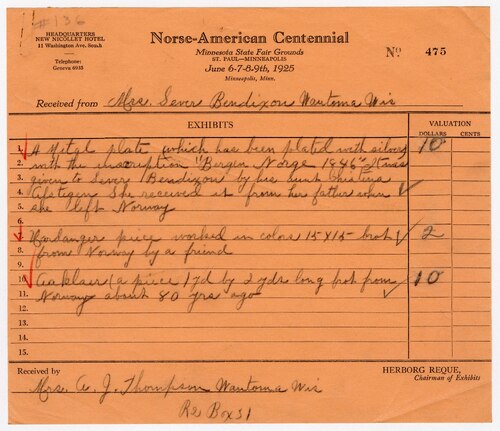 #136
HEADQUARTERS
NEW NICOLLET HOTEL
11 Washington Ave. South
Telephone:
Geneva 6935
Norse-American Centennial
Minnesota State Fair Grounds
ST. PAUL—MINNEAPOLIS
June 6-7-8-9th, 1925
Minneapolis, Minn.
No 475
Received from Mrs. Sever Bendixon Wautoma Wis
EXHIBITS
VALUATION
DOLLARS CENTS
1. A Metal plate which has been plated with silver 10
2. with the inscription "Bergen Norge 1846" It was
3. given to Sever Bendixon by his aunt
4. She received it from her father when
5. she left Norway
6.
7. Hardanger piece worked in colors 15x15 - brot 2
8. from Norway by a friend
9.
10. (a piece 1 yd by 2 yds long brot from 10
11. Norway about 80 yrs ago
12.
13.
14.
15.
Received by
HERBORG REQUE,
Chairman of Exhibits
Mrs. A. J. Thompson Wautoma Wis
Box 51